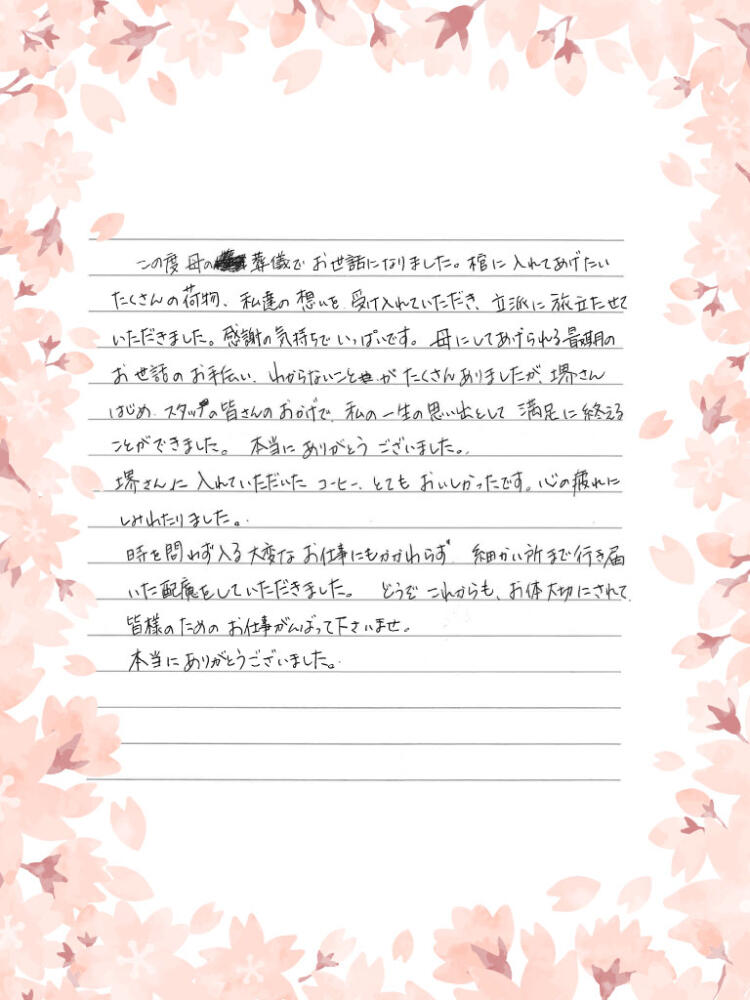 この度母の葬儀でお世話になりました。棺に入れてあげたい
たくさんの荷物、私達の想いを受け入れていただき、立派に旅立たせて
いただきました。感謝の気持ちでいっぱいです。母にしてあげられる最期の
お世話のお手伝い、わからないことがたくさんありましたが、堺さん
はじめ、スタッフの皆さんのおかげで、私の一生の思い出として満足に終える
ことができました。本当にありがとうございました。
堺さんに入れていただいたコーヒー、とてもおいしかったです。心の疲れに
しみわたりました。
時を問わず入る大変なお仕事にもかかわらず、細かい所まで行き届
いた配慮をしていただきました。どうぞこれからも、お体大切にされて
皆様のためのお仕事がんばって下さいませ。
本当にありがとうございました。